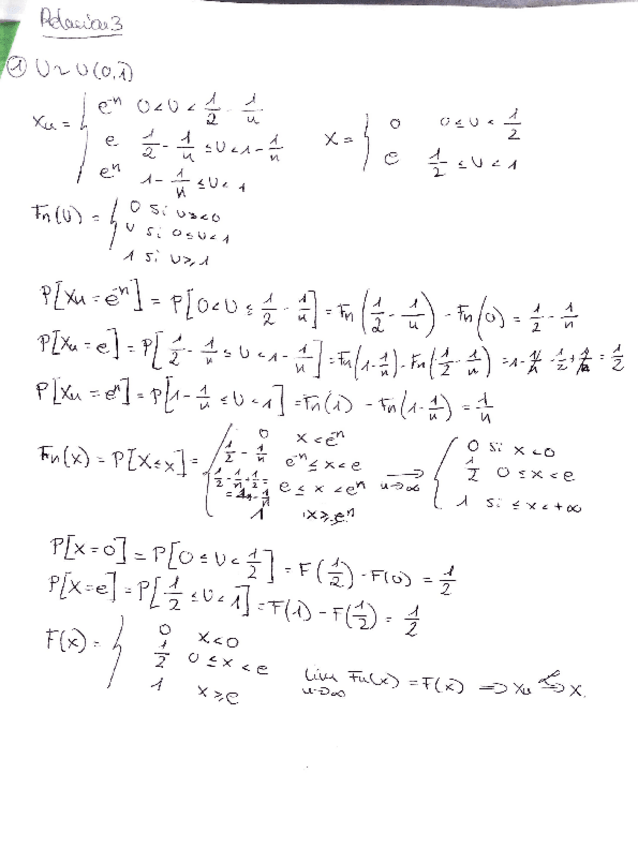 Relación 3
① U ~ U(0,1)
Xn = { e^-n 0<U<1/2 - 1/n
e 1/2 - 1/n ≤U<1- 1/n
e^n 1- 1/n ≤U<1
X = { 0 0≤U<1/2
e 1/2 ≤U<1
Fn(U) = { 0 si U<0
U si 0≤U<1
1 si U≥1
P[Xn = e^-n] = P[0<U≤ 1/2 - 1/n] = Fn(1/2 - 1/n) - Fn(0) = 1/2 - 1/n
P[Xn = e] = P[1/2 - 1/n ≤U<1- 1/n] = Fn(1- 1/n) - Fn(1/2 - 1/n) = 1- 1/n - 1/2 + 1/n = 1/2
P[Xn = e^n] = P[1- 1/n ≤U<1] = Fn(1) - Fn(1- 1/n) = 1/n
Fn(x) = P[X≤x] = { 0 x<e^-n
1/2 - 1/n e^-n≤x<e
1/2 - 1/n + 1/2 = = 1 - 1/n e≤x<e^n
1 x≥e^n
n→∞ { 0 si x<0
1/2 0≤x<e
1 si ≤x<+∞
P[X=0] = P[0≤U<1/2] = F(1/2) - F(0) = 1/2
P[X=e] = P[1/2 ≤U<1] = F(1) - F(1/2) = 1/2
F(x) = { 0 x<0
1/2 0≤x<e
1 x≥e
lim n→∞ Fn(x) = F(x) ⇒ Xn L→ X.